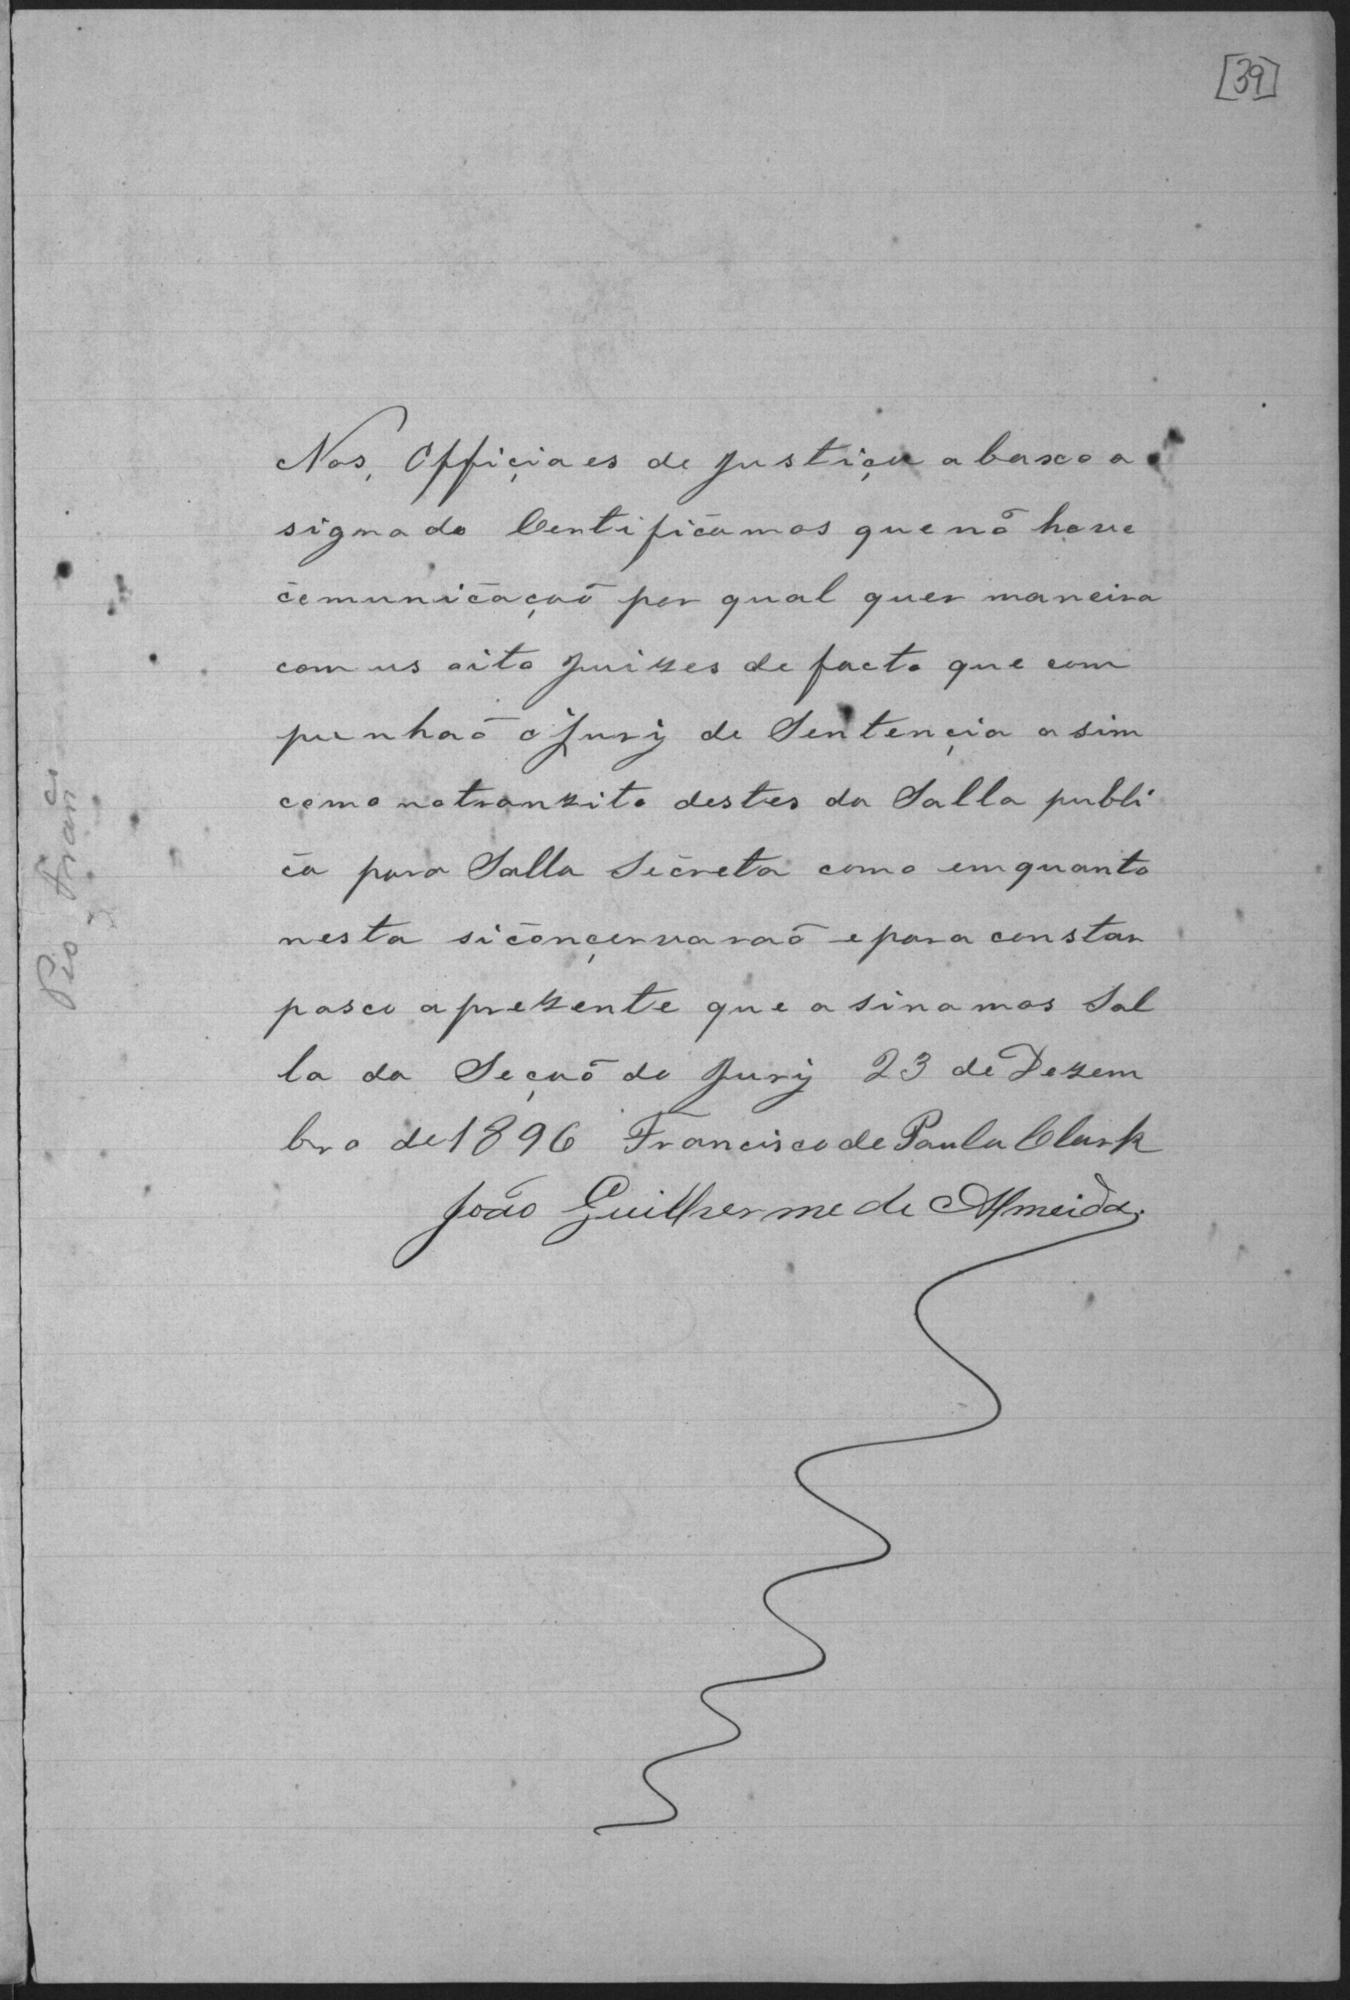 [39]
Nos, Offiçiaes de Justiça abaxo a
signado Certificamos que nõ have
comunicaçaõ por qual quer maneira
com us oito Juizes de facto que com
punhaõ o Jury de Sentençia asim
como notranzito destes da Salla publi
ca para Salla Secreta como emquanto
nesta siconçervaraõ epara constar
pasco aprezente que asinamos Sal
la da Seçaõ do Jury 23 de Dezem
bro de 1896 Francisco de Paula Clark
João Guilherme de Almeida.
Pio Fran